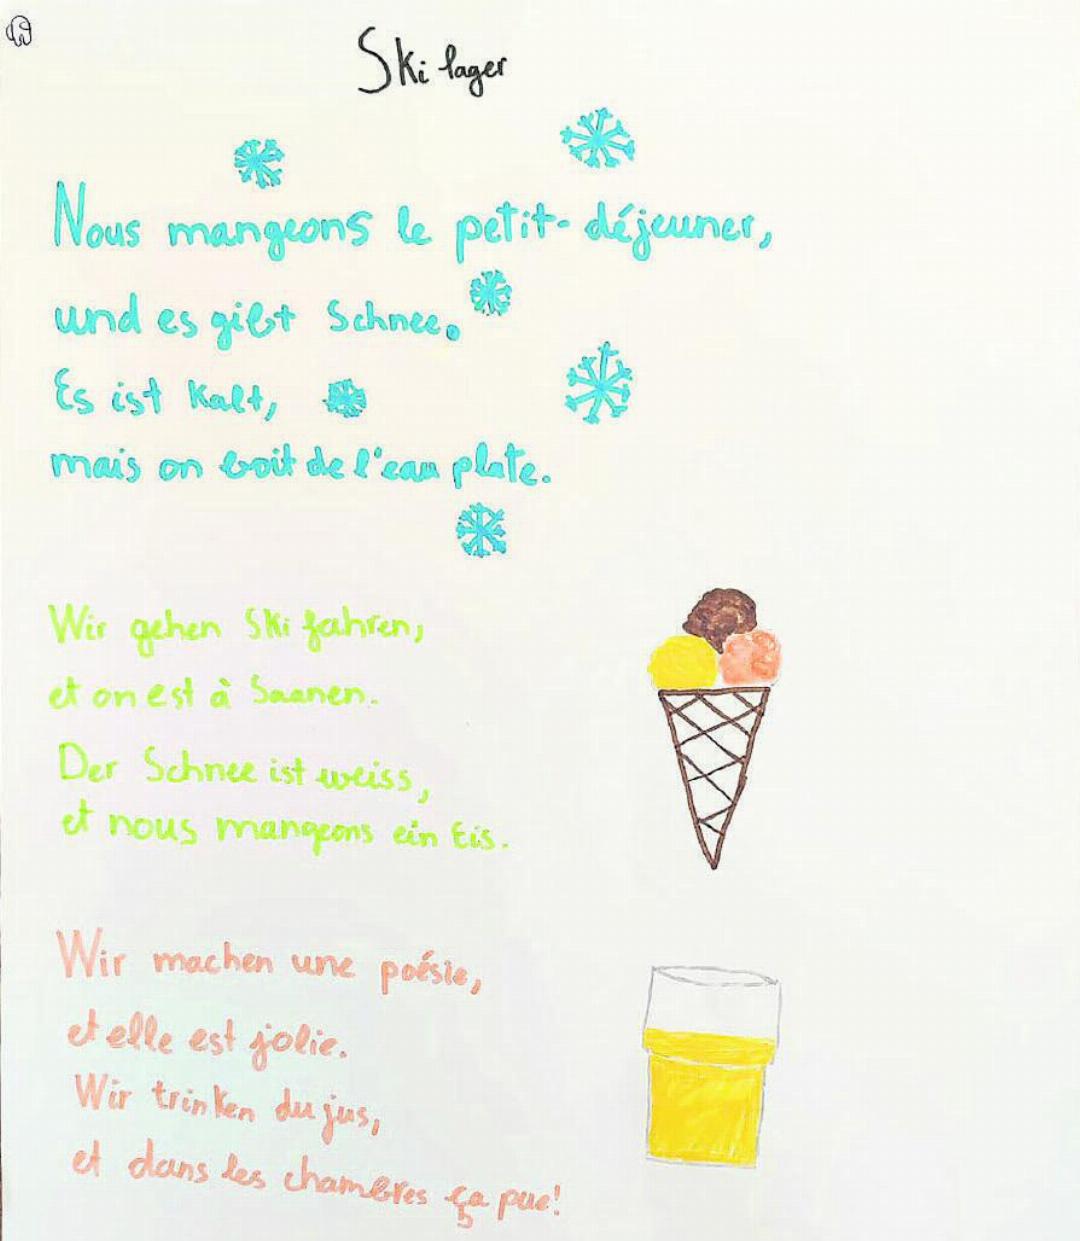 Skilager
Nous mangeons le petit-déjeuner,
und es gibt Schnee.
Es ist kalt,
mais on boit de l'eau plate.
Wir gehen Ski fahren,
et on est à Saanen.
Der Schnee ist weiss,
et nous mangeons ein Eis.
Wir machen une poésie,
et elle est jolie.
Wir trinken du jus,
et dans les chambres ça pue!